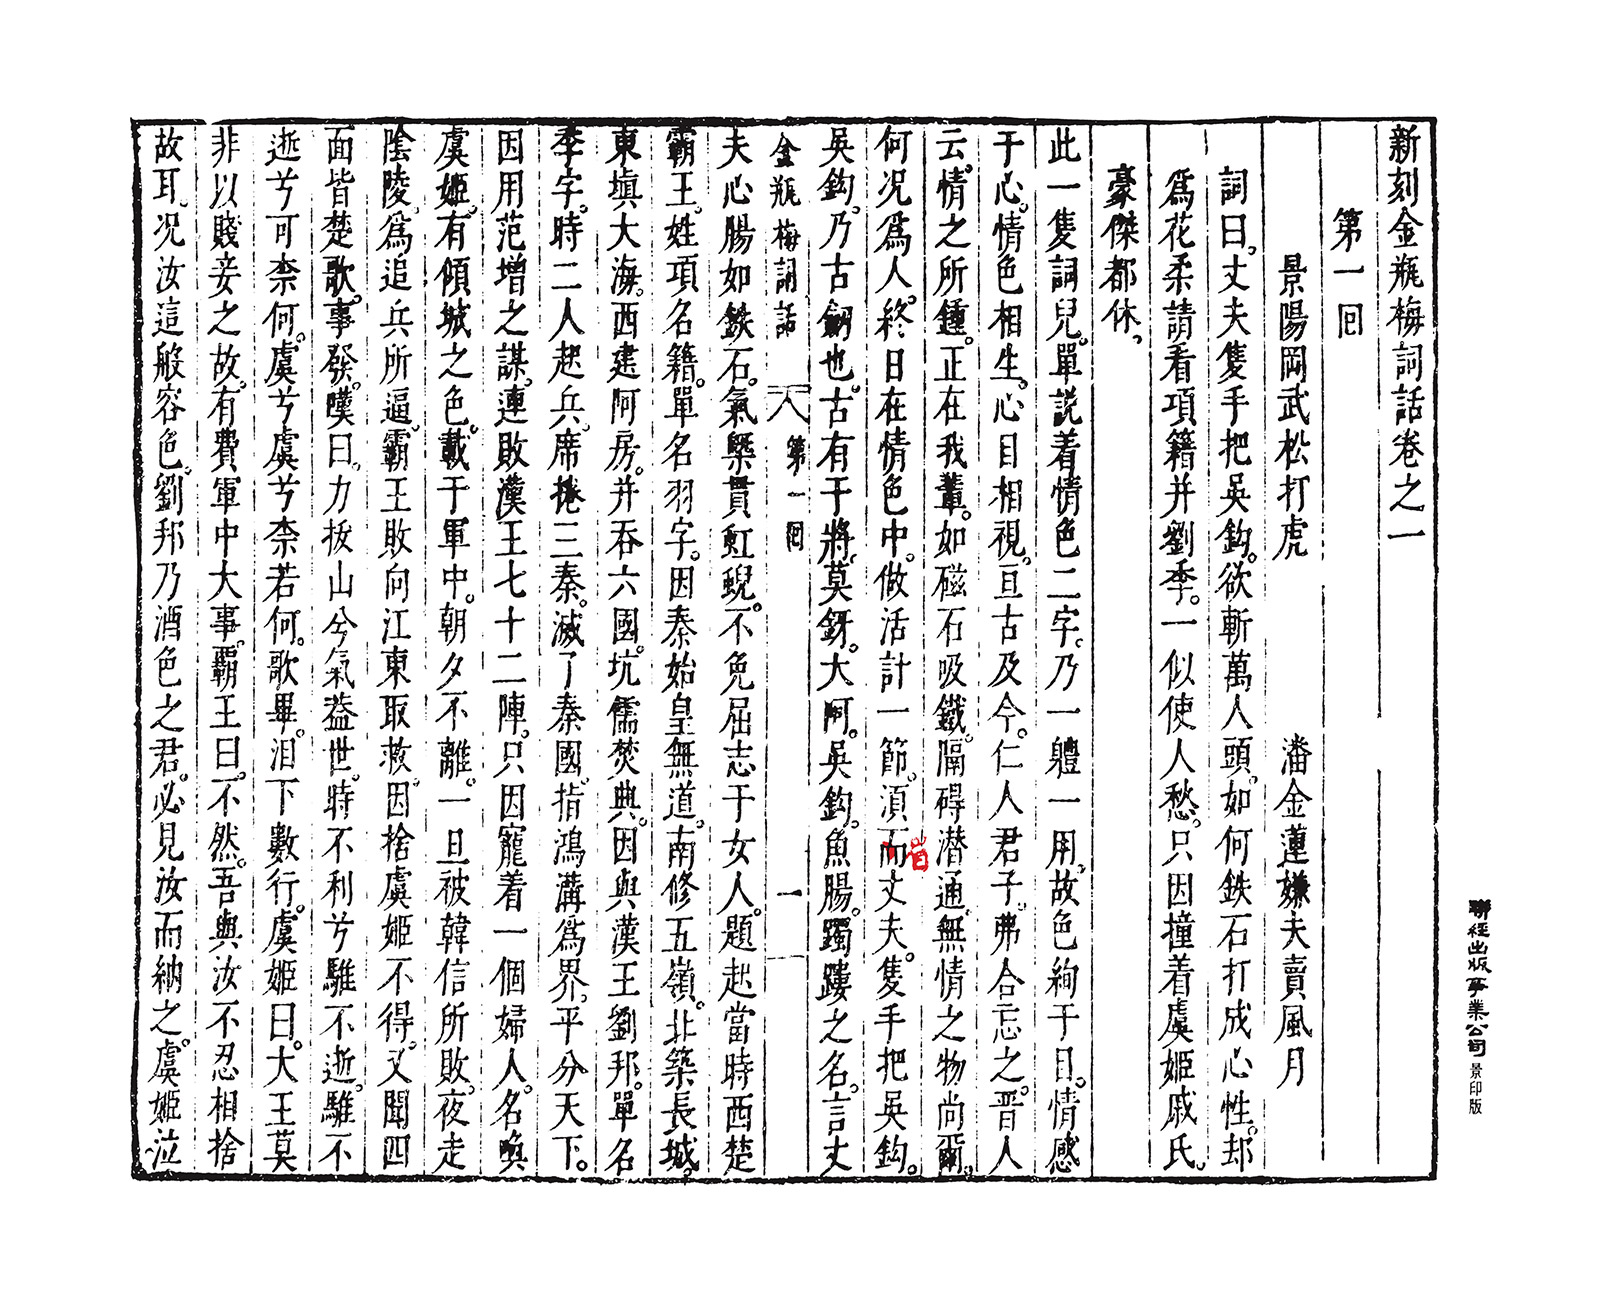 新刻金瓶梅詞話卷之一
第一回
景陽岡武松打虎　潘金蓮嫌夫賣風月
詞曰。丈夫隻手把吳鈎。欲斬萬人頭。如何鉄石打成心性。却
爲花柔請看項籍并劉季。一似使人愁。只因撞着虞姬戚氏。
豪傑都休。
此一隻詞兒。單說着情色二字。乃一體一用。故色絢于目。情感
于心。情色相生。心目相視。亘古及今。仁人君子。弗合忘之。晉人
云。情之所鍾。正在我輩。如磁石吸鐵。隔碍潛通。無情之物尚爾。
何况爲人。終日在情色中。做活計一節。須而丈夫。隻手把吳鈎。
吳鈎。乃古劒也。古有干將。莫鋣。太阿。吳鈎。魚腸。躅𨅬之名。言丈
金瓶梅詞話　第一回　一
夫心腸如鉄石。氣槩貫虹蜺。不免屈志于女人。題起當時西楚
霸王。姓項名籍。單名羽字。因秦始皇無道。南修五嶺。北築長城。
東填大海。西建阿房。并吞六國。坑儒焚典。因與漢王劉邦。單名
季字。時二人起兵。席捲三秦。滅了秦國。指鴻溝爲界。平分天下。
因用范增之謀。連敗漢王七十二陣。只因寵着一個婦人。名喚
虞姬。有傾城之色。載于軍中。朝夕不離。一旦被韓信所敗。夜走
陰陵。爲追兵所逼。霸王敗向江東取救。因捨虞姬不得。又聞四
面皆楚歌。事發。嘆曰。力拔山兮氣葢世。時不利兮騅不逝。騅不
逝兮可柰何。虞兮虞兮柰若何。歌畢。泪下數行。虞姬曰。大王莫
非以賤妾之故。有費軍中大事。霸王曰。不然。吾與汝不忍相捨
故耳。况汝這般容色。劉邦乃酒色之君。必見汝而納之。虞姬泣
聯經出版事業公司 景印版